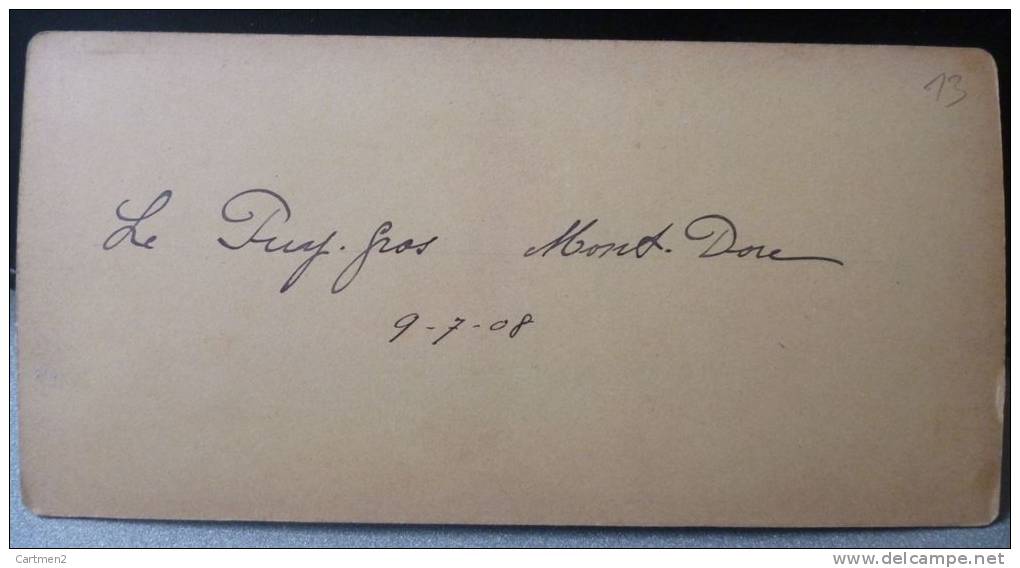 13
Le Puy-gros Mont-Dore
9-7-08
Cartmen2
www.delcampe.net